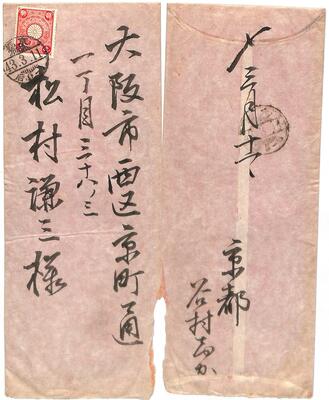 大阪市西区京町通
一丁目三十八ノ三
松村謙三様
43.3.11
〆
三月十一
京都
谷村